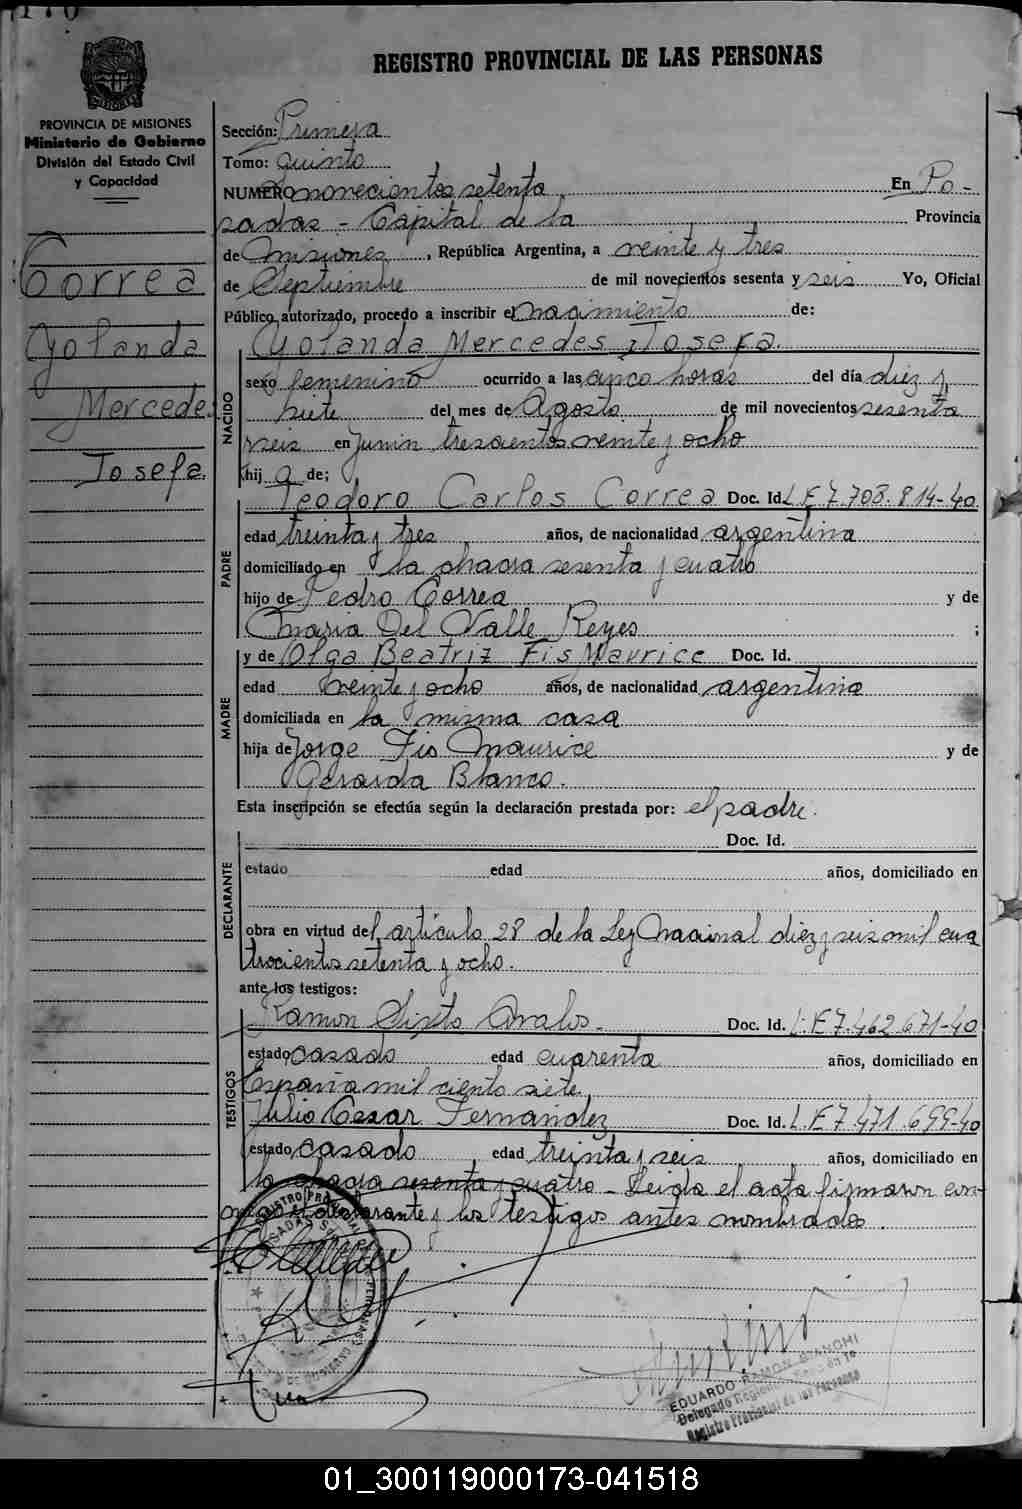 170
REGISTRO PROVINCIAL DE LAS PERSONAS
PROVINCIA DE MISIONES
Ministerio de Gobierno
División del Estado Civil
y Capacidad
Correa
Yolanda
Mercedes
Josefa.
Sección: Primera
Tomo: quinto
NUMERO novecientos setenta En Po-
sadas - Capital de la Provincia
de Misiones, República Argentina, a veinte y tres
de Septiembre de mil novecientos sesenta y seis Yo, Oficial
Público autorizado, procedo a inscribir el nacimiento de:
Yolanda Mercedes Josefa.
NACIDO
sexo femenino ocurrido a las cinco horas del día diez y
siete del mes de Agosto de mil novecientos sesenta
y seis en Junin trescientos veinte y ocho
hija de;
PADRE
Teodoro Carlos Correa Doc. Id. L.E 7.708.814-40
edad treinta y tres años, de nacionalidad argentina
domiciliado en la chacra sesenta y cuatro
hijo de Pedro Correa y de
Maria Del Valle Reyes ;
MADRE
y de Olga Beatriz Fis Maurice Doc. Id.
edad veinte y ocho años, de nacionalidad argentina
domiciliada en la misma casa
hija de Jorge Fis Maurice y de
Gerarda Blanco.
Esta inscripción se efectúa según la declaración prestada por: el padre.
DECLARANTE
Doc. Id.
estado edad años, domiciliado en
obra en virtud del artículo 28 de la Ley Nacional diez y seis mil cua
trocientos setenta y ocho.
ante los testigos:
TESTIGOS
Ramon Sixto Avalos. Doc. Id. L.E 7.462.671-40
estado casado edad cuarenta años, domiciliado en
España mil ciento siete
Julio Cesar Fernandez Doc. Id. L.E 7.471.699-40
estado casado edad treinta y seis años, domiciliado en
la chacra sesenta y cuatro - Leida el acta firmaron con-
migo el declarante y los testigos antes nombrados.
EDUARDO RAMON BIANCHI
Registro Provincial de las Personas
01_300119000173-041518